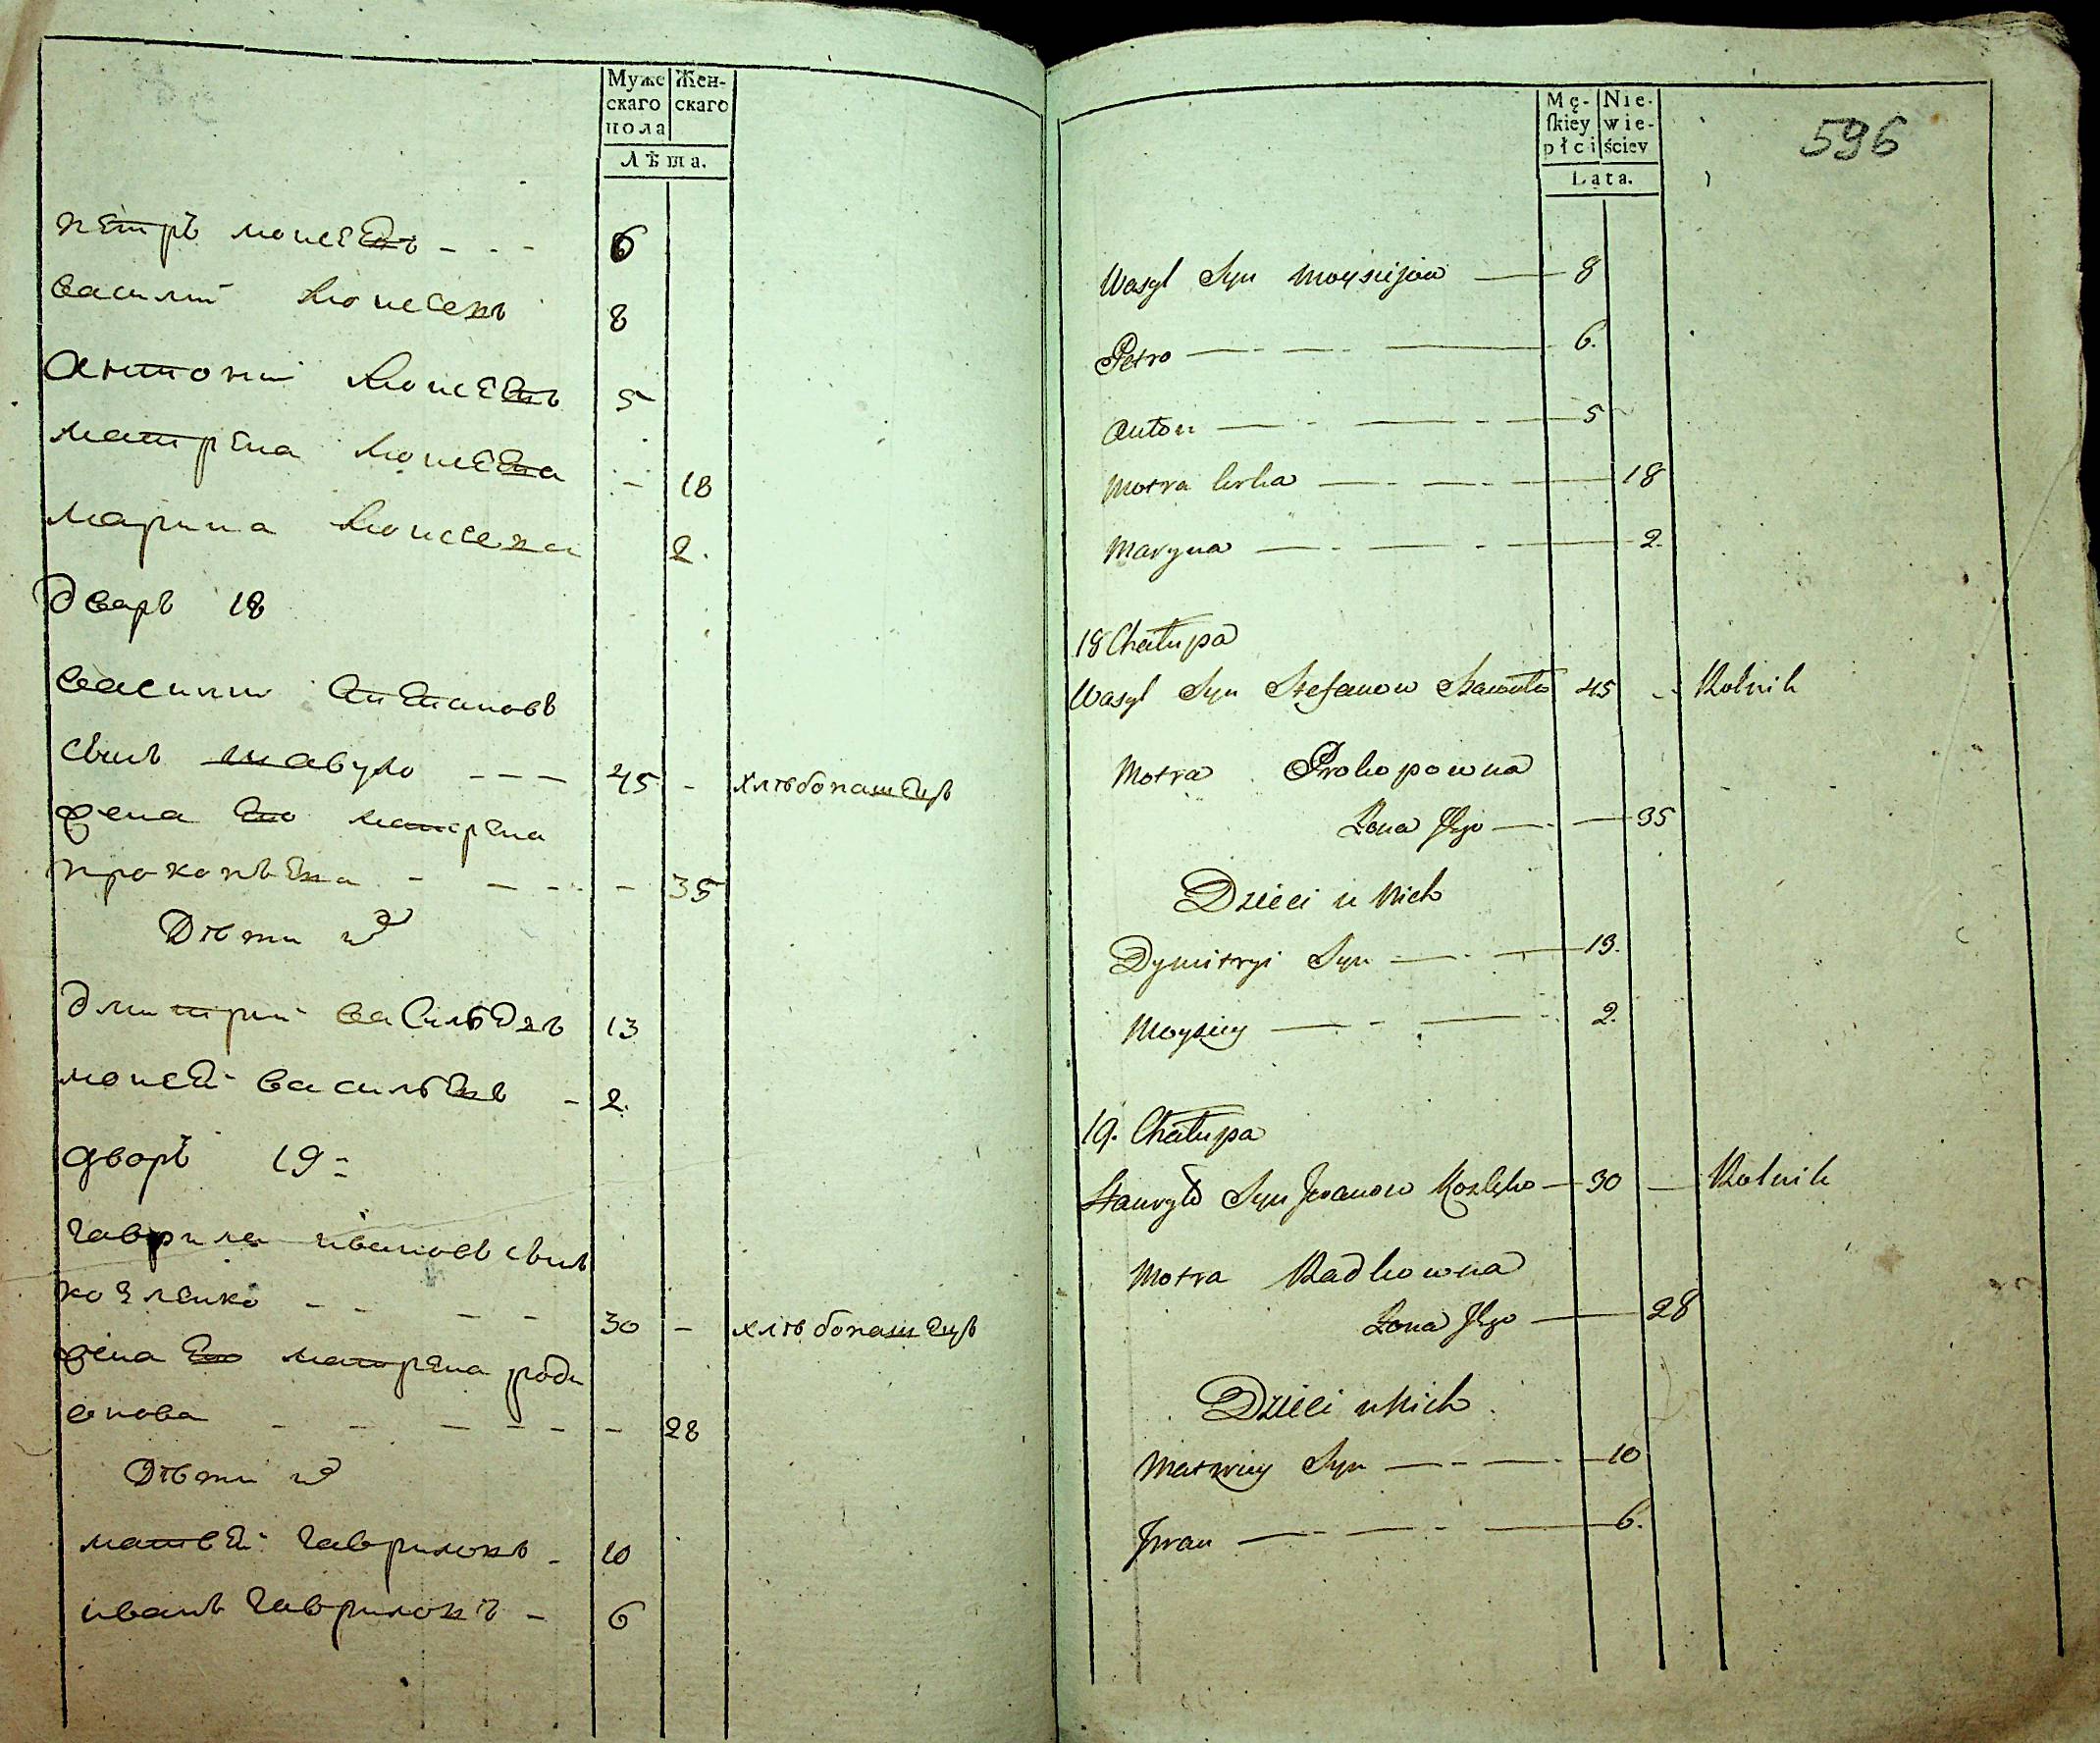 Муже
скаго
пола
Жен-
скаго
Лѣта.
петръ моисеевъ - - - 6
василий моисеевъ 8
антоний моисеевъ 5
матрена моисеева - 18
марина моисеева 2.
дворъ 18
василий степановъ
сынъ шавуло - - - 45 - хлѣбопашецъ
жена его матрена
прокопьева - - - - 35
Дѣти их
дмитрий васильевъ 13
моисей васильевъ - 2.
дворъ 19=
гаврила ивановъ сынъ
козленко - - - - 30 - хлѣбопашецъ
жена его матрена роди
онова - - - - - - 28
Дѣти их
матвей гавриловъ - 10
иванъ гавриловъ - 6
Mę-
ſkiey
płci
Nie-
wie-
ściey
Lata.
596
Wasyl Syn Moysiejow — 8
Petro — - — - — 6.
Anton — - — - — 5
Motra Corka — - — - — 18
Maryna — - - — 2.
18 Chałupa
Wasyl Syn Stefanow Szawuło 45 - Rolnik
Motra Prokopowna
Żona Jego — - — 35
Dzieci u Nich
Dymitryi Syn — - — 13.
Moysiey — - — - 2.
19. Chałupa
Hawryło Syn Jwanow Kozlęko — 30 — Rolnik
Motra Radkowna
Żona Jego — 28
Dzieci u Nich
Matwiey Syn — - — - 10
Jwan — - — - — 6.